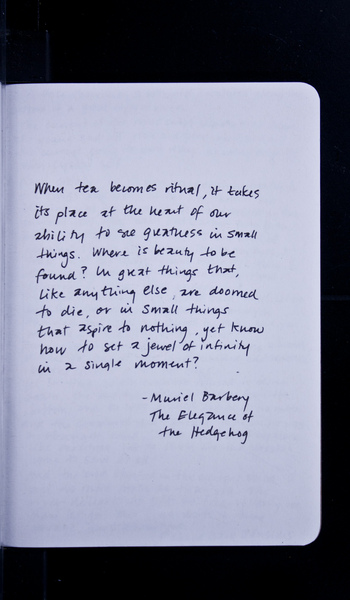 When tea becomes ritual, it takes
its place at the heart of our
ability to see greatness in small
things. Where is beauty to be
found? In great things that,
like anything else, are doomed
to die, or in small things
that aspire to nothing, yet know
how to set a jewel of infinity
in a single moment?
- Muriel Barbery
The Elegance of
the Hedgehog